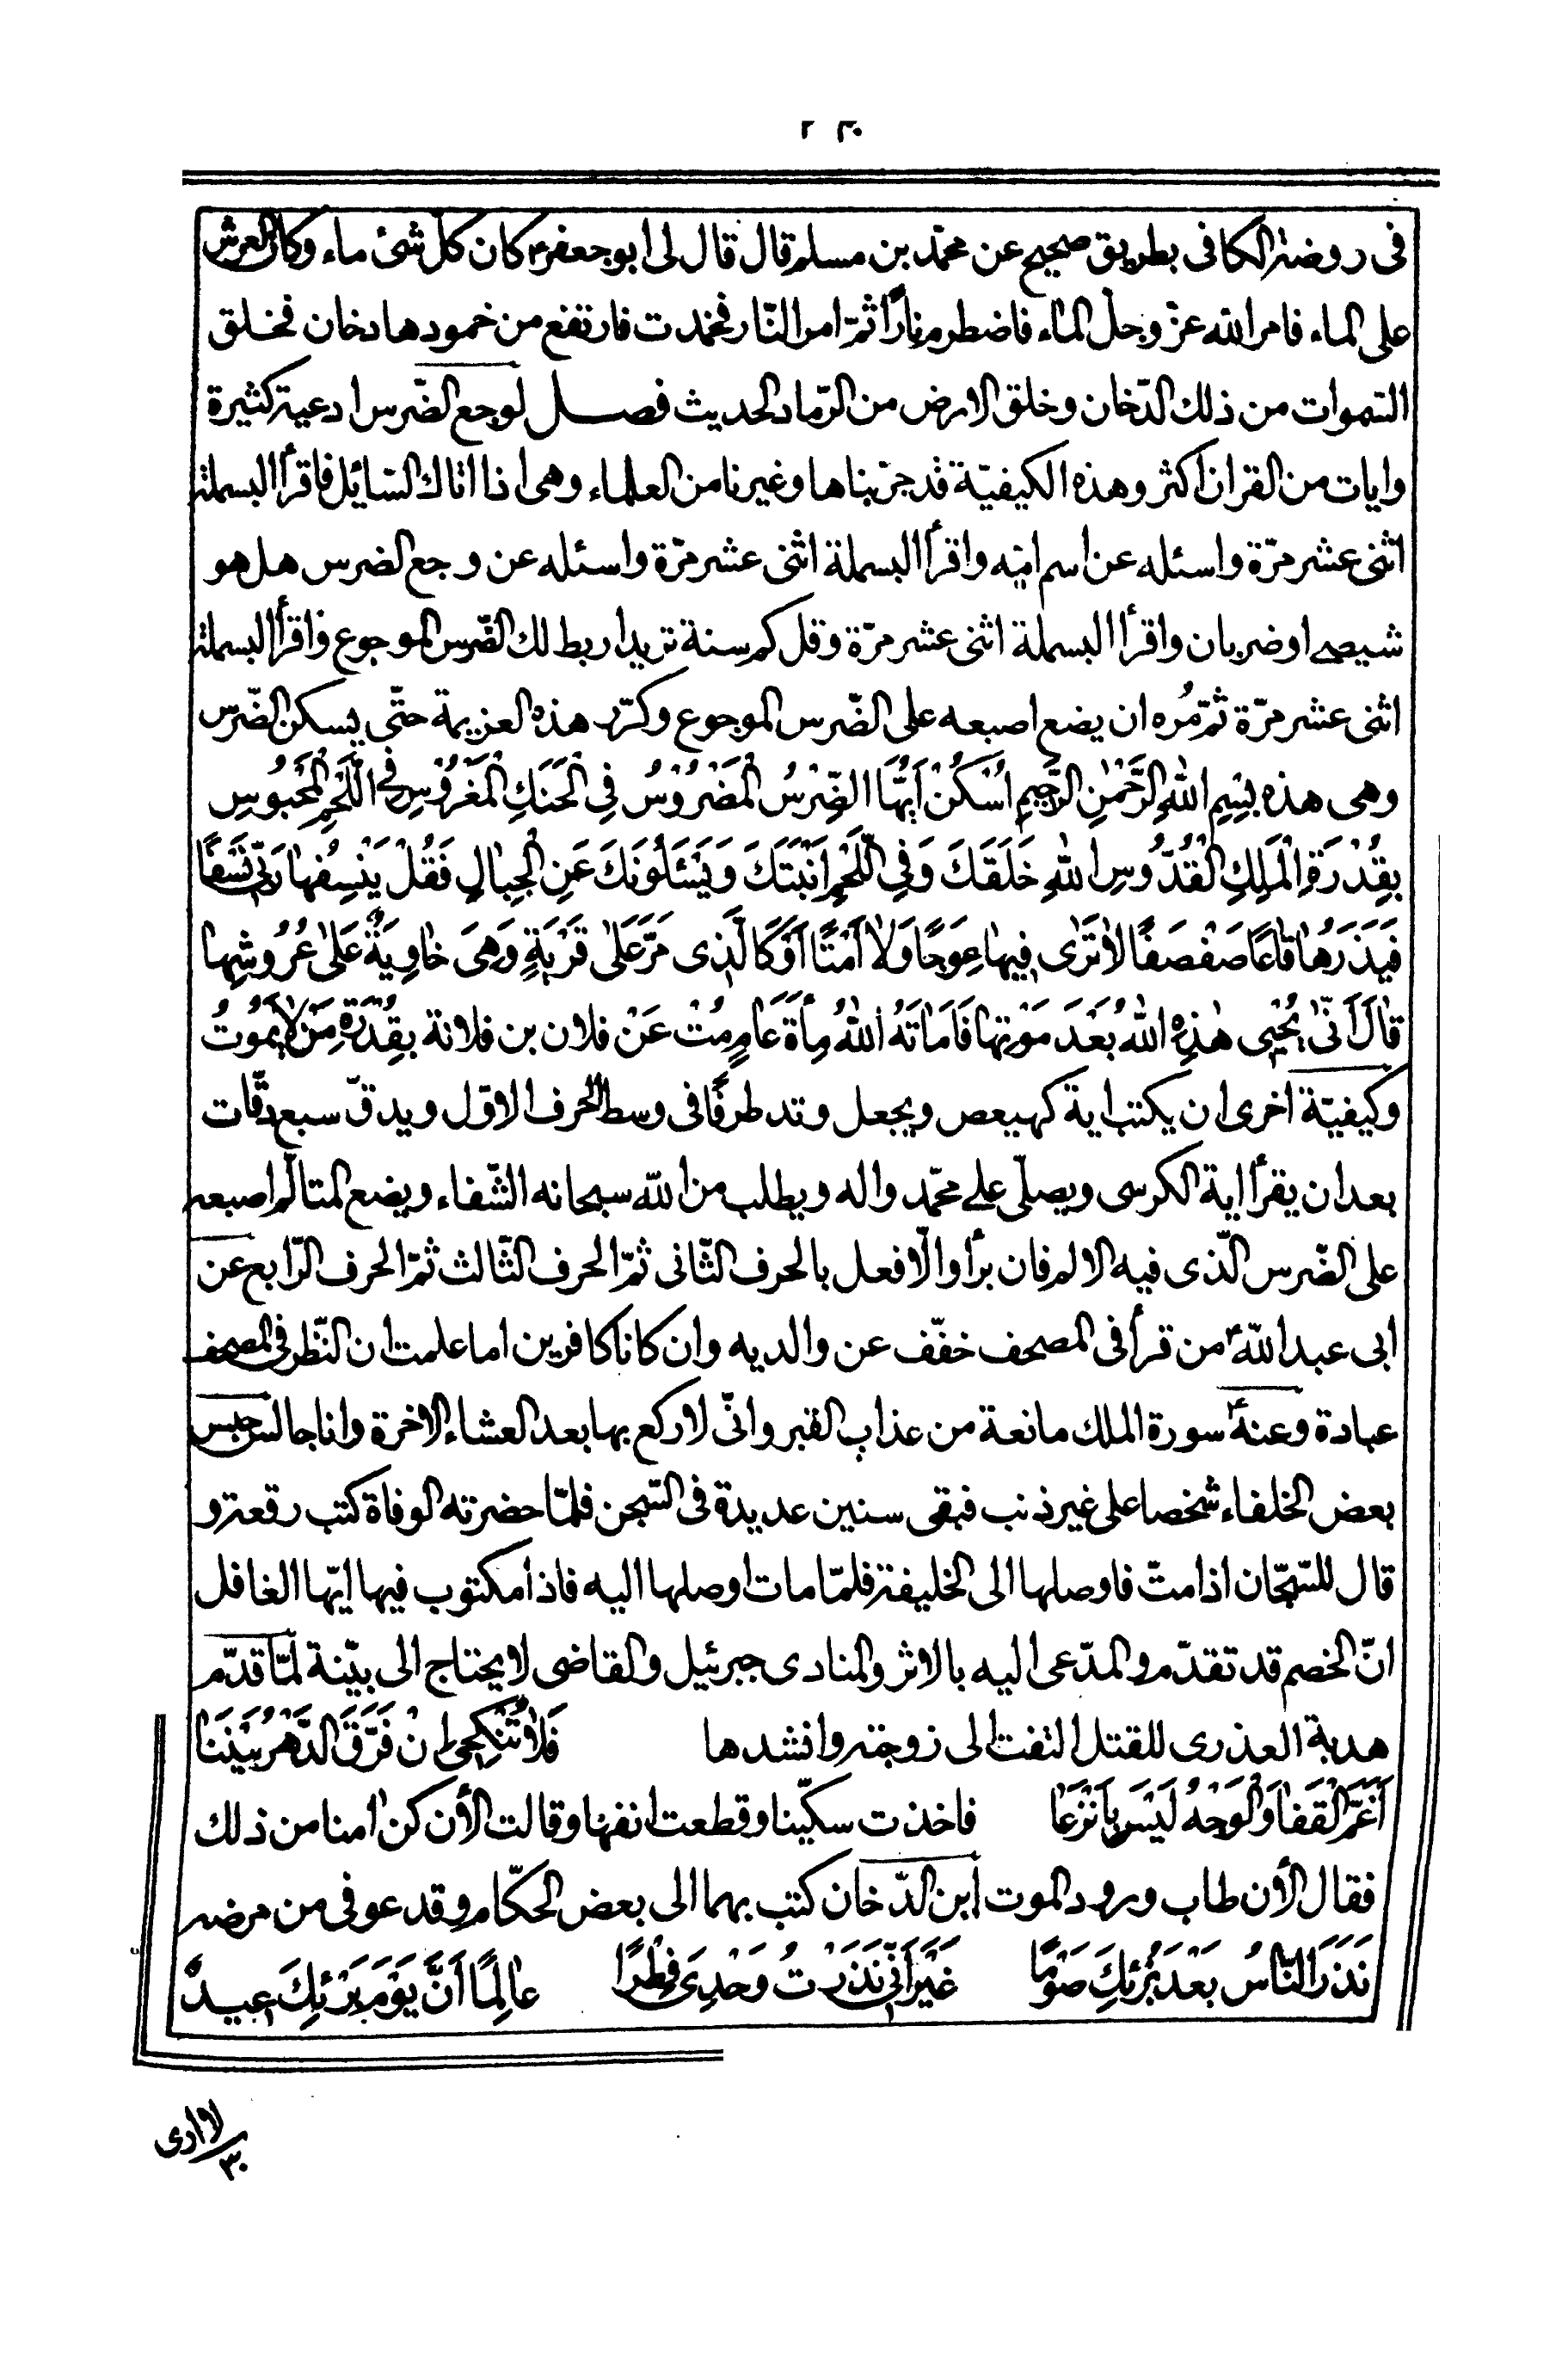 ٢٣٠
فى روضة الكافى بطريق صحيح عن محمّد بن مسلم قال قال لى ابو جعفرع كان كل شئ ماء وكان العرش
على الماء فامر الله عزّ وجلّ الماء فاضطرم ناراً ثمّ امر النّار فخمدت فارتفع من خمودها دخان فخلق
السّموات من ذلك الدّخان وخلق الارض من الرّماد الحديث فصل لوجع الضّرس ادعية كثيرة
وايات من القران اكثر وهذه الكيفيّة قد جرّبناها وغيرنا من العلماء وهى اذا اتاك السّائل فاقرأ البسملة
اثنى عشر مرّة واسئله عن اسم امّه واقرأ البسملة اثنى عشر مرّة واسئله عن وجع الضرس هل هو
شيصى او ضربان واقرأ البسملة اثنى عشر مرّة وقل كم سنة تريد اربط لك الضّرس الموجوع واقرأ البسملة
اثنى عشر مرّة ثمّ مُره ان يضع اصبعه على الضّرس الموجوع وكرّر هذه العزيمة حتّى يسكن الضّرس
وهى هذه بِسْمِ اللهِ الرَّحْمٰنِ الرَّحِيمِ اُسْكُنْ اَيُّهَا الضِّرْسُ الْمَضْرُوْسُ فِي الْحَنَكِ الْمَغْرُوْسِ فِي اللَّحْمِ الْمَحْبُوسِ
بِقُدْرَةِ الْمَلِكِ الْقُدُّوسِ اللهِ خَلَقَكَ وَفِي اللَّحْمِ اَنْبَتَكَ وَيَسْئَلُوْنَكَ عَنِ الْجِبَالِ فَقُلْ يَنْسِفُهٰا رَبّى نَسْفًا
فَيَذَرُهٰا قٰاعًا صَفْصَفًا لاٰ تَرٰى فِيهٰا عِوَجًا وَلاٰ اَمْتًا اَوْ كَالَّذِى مَرَّ عَلٰى قَرْيَةٍ وَهِىَ خٰاوِيَةٌ عَلٰى عُرُوشِهٰا
قٰالَ اَنّٰى يُحْيِى هٰذِهِ اللهُ بَعْدَ مَوْتِهٰا فَاَمَاتَهُ اللهُ مِأَةَ عَامٍ مُتْ عَنْ فلان بن فلانة بِقُدْرَةِ مَنْ لاٰ يَمُوتُ
وكيفيّة اخرى ان يكتب اية كهيعص ويجعل وتد طرفًا فى وسط الحرف الاوّل ويدقّ سبع دقّات
بعد ان يقرأ اية الكرسى ويصلّى على محمّد واله ويطلب من الله سبحانه الشّفاء ويضع المتالّم اصبعه
على الضّرس الّذى فيه الالم فان برأ والّا فعل بالحرف الثّانى ثمّ الحرف الثّالث ثمّ الحرف الرّابع عن
ابى عبد اللهع من قرأ فى المصحف خفّف عن والديه وان كانا كافرين اما علمت ان النّظر فى المصحف
عبادة وعنهع سورة الملك مانعة من عذاب القبر وانّى لاركع بها بعد العشاء الاخرة وانا جالس حبس
بعض الخلفاء شخصا على غير ذنب فبقى سنين عديدة فى السّجن فلمّا حضرته الوفاة كتب رقعة و
قال للسّجّان اذا متّ فاوصلها الى الخليفة فلمّا مات اوصلها اليه فاذا مكتوب فيها ايّها الغافل
انّ الخصم قد تقدّم والمدّعى اليه بالاثر والمنادى جبرئيل والقاضى لا يحتاج الى بيّنة لمّا قدّم
هدبة العذرى للقتل التفت الى زوجته وانشدها فَلاٰ تَنْكِحِى اِنْ فَرَّقَ الدَّهْرُ بَيْنَنٰا
اَغَمَّ الْقَفٰا وَالْوَجْهُ لَيْسَ بِاَنْزَعٰا فاخذت سكّينا وقطعت انفها وقالت الأن كن امنا من ذلك
فقال الأن طاب ورود الموت ابن الدّخان كتب بهما الى بعض الحكّام وقد عوفى من مرضه
نَذَرَ النّٰاسُ بَعْدَ بُرْئِكَ صَوْمًا غَيْرَ اَنّى نَذَرْتُ وَحْدِىَ فِطْرًا عٰالِمًا اَنَّ يَوْمَ بُرْئِكَ عِيدٌ
لا ارى
٣٠